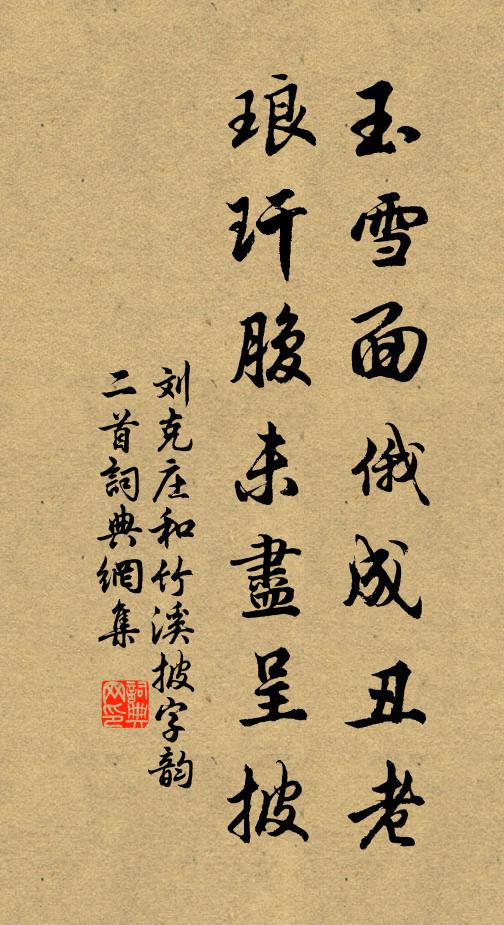 玉雪面俄成丑老
琅玕腹未盡呈披
刘克庄和竹溪披字韵
二首詞典網集
詞典网印